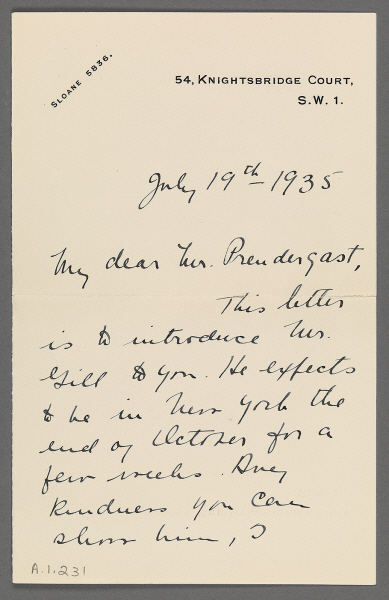 SLOANE 5836.
54, KNIGHTSBRIDGE COURT,
S.W. 1.
July 19th - 1935
My dear Mr. Prendergast,
This letter
is to introduce Mr.
Gill to you. He expects
to be in New York the
end of October for a
few weeks. Any
kindness you can
show him, I
A.1.231